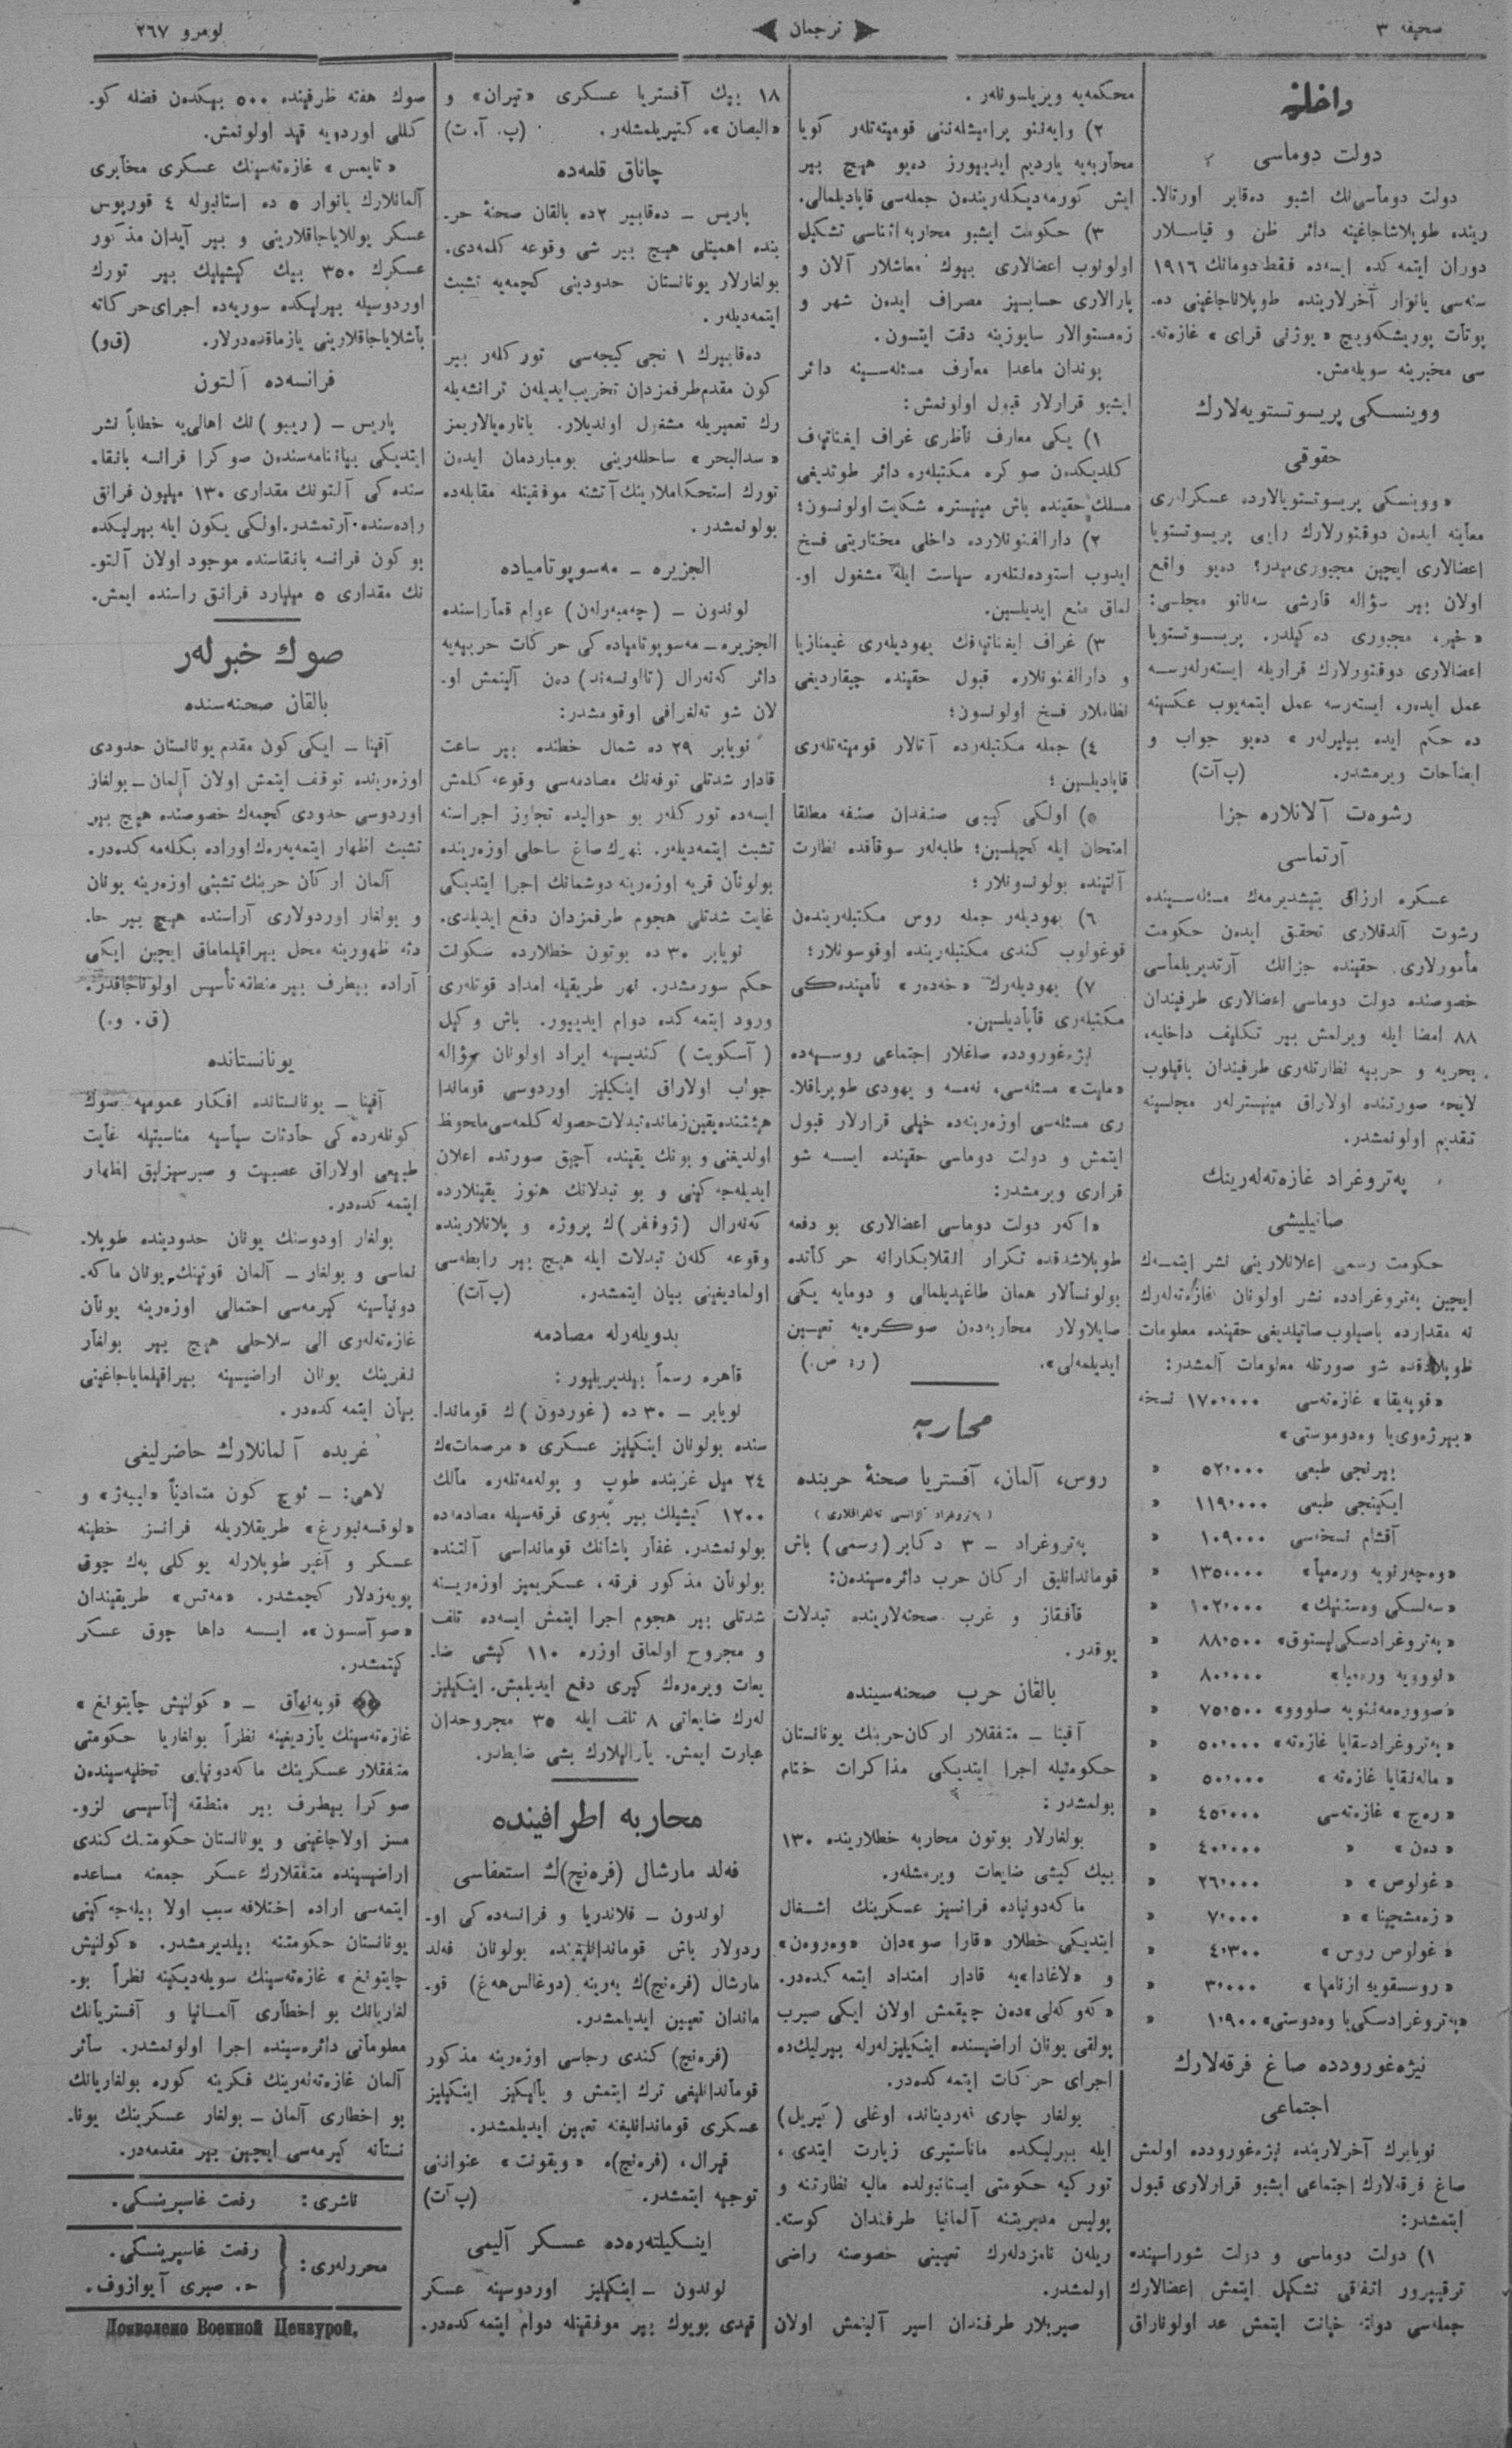 صحیفه ٣
ترجمان
نومرو ٢٦٧
داخلیه
دولت دوماسی
دولت دوماسی‌نك اشبو ده‌قابر اورتالا-
رینده طوپلاشاجاغینه دائر ظن و قیاسلار
دوران ایتمه‌كده ایسه‌ده فقط دومانك ١٩١٦
سنه‌سی یانوار آخرلارینده طوپلاناجاغینی ده-
پوتات پوریشكه‌ویچ «یوژنی قرای» غازه‌ته-
سی مخبرینه سویله‌مش.
ووینسكی پریسوتستویه‌لارك
حقوقی
«ووینسكی پریسوتستویالارده عسكرلری
معاینه ایدن دوقتورلارك رایی پریسوتستویا
اعضالاری ایچین مجبوری‌میدر؟ ده‌یو واقع
اولان بیر سؤاله قارشی سه‌ناتو مجلسی:
«خیر، مجبوری ده‌كلدر. پریسوتستویا
اعضالاری دوقتورلارك قراریله ایسته‌رله‌رسه
عمل ایده‌ر، ایسته‌رسه عمل ایتمه‌یوب عكسینه
ده حكم ایده بیلیرلر» ده‌یو جواب و
ایضاحات ویرمشدر. (پ‌آت)
رشوه‌ت آلانلاره جزا
آرتماسی
عسكره ارزاق یتیشدیرمه‌ك مسئله‌سینده
رشوت آلدقلاری تحقق ایدن حكومت
مأمورلاری حقینده جزانك آرتدیریلماسی
خصوصنده دولت دوماسی اعضالاری طرفیندان
٨٨ امضا ایله ویرلمش بیر تكلیف داخلیه،
بحریه و حربیه نظارتله‌ری طرفیندان باقیلوب
لایحه صورتنده اولاراق مینیسترلر مجلسینه
تقدیم اولونمشدر.
په‌تروغراد غازه‌ته‌له‌رینك
صاتیلیشی
حكومت رسمی اعلانلارینی نشر ایتمه‌ك
ایچین په‌تروغرادده نشر اولونان غازه‌ته‌لرك
نه مقدارده باصیلوب صاتیلدیغی حقینده معلومات
طوپلادقده شو صورتله معلومات آلمشدر:
«قوپه‌یقا» غازه‌ته‌سی ١٧٠٠٠٠ نسخه
«بیرژه‌وی‌یا وه‌دوموستی»
بیرنجی طبعی ٥٢٠٠٠ «
ایكینجی طبعی ١١٩٠٠٠ «
آقشام نسخه‌سی ١٠٩٠٠٠ «
«وه‌چه‌رنویه وره‌میا» ١٣٥٠٠٠ «
«سه‌لسكی وه‌ستنیك» ١٠٢٠٠٠ «
«په‌تروغرادسكی لیستوق» ٨٨٥٠٠ «
«نوویه وره‌میا» ٨٠٠٠٠ «
«صووره‌مه‌ننویه صلووو» ٧٥٥٠٠ «
«په‌تروغرادسقایا غازه‌ته» ٥٠٠٠٠ «
«ماله‌نقایا غازه‌ته» ٥٠٠٠٠ «
«ره‌چ» غازه‌ته‌سی ٤٥٠٠٠ «
«ده‌ن» « ٤٠٠٠٠ «
«غولوص» « ٢٦٠٠٠ «
«زه‌مشچینا» « ٧٠٠٠ «
«غولوص روس» ٤٣٠٠ «
«روسسقویه ازنامیا» ٣٠٠٠ «
«په‌تروغرادسكی‌یا وه‌دوستی» ١٩٠٠ «
نیژه‌غورودده صاغ فرقه‌لارك
اجتماعی
نویابرك آخرلارینده نیژه‌غورودده اولمش
صاغ فرقه‌لارك اجتماعی ایشبو قرارلاری قبول
ایتمشدر:
١) دولت دوماسی و دولت شوراسینده
ترقیپرور اتفاقی تشكیل ایتمش اعضالارك
جمله‌سی دولته خیانت ایتمش عد اولوناراق
محكمه‌یه ویریلسونلر.
٢) وایه‌ننو پرامیشله‌ننی قومیته‌تلر كویا
محاربه‌یه یاردیم ایدیپورز ده‌یو هیچ بیر
ایش كورمه‌دیكله‌ریندن جمله‌سی قاپادیلمالی.
٣) حكومت ایشبو محاربه اثناسی تشكیل
اولونوب اعضالاری بیوك معاشلار آلان و
پارالاری حسابسیز مصراف ایدن شهر و
زه‌مستوالار سایوزینه دقت ایتسون.
بوندان ماعدا معارف مسئله‌سینه دائر
ایشبو قرارلار قبول اولونمش:
١) یكی معارف ناظری غراف ایغناتیه‌ف
كلدیكدن صوكره مكتبلره دائر طوتدیغی
مسلك حقینده باش مینیستره شكایت اولونسون؛
٢) دارالفنونلارده داخلی مختاریتی فسخ
ایدوب استوده‌نتله‌ره سیاست ایله مشغول او-
لماق منع ایدیلسین.
٣) غراف ایغناتیه‌فك یهودیله‌ری غیمنازیا
و دارالفنونلاره قبول حقینده چیقاردیغی
نظاملار فسخ اولونسون؛
٤) جمله مكتبله‌رده آتالار قومیته‌تله‌ری
قاپادیلسین؛
٥) اولكی كیبی صنفدان صنفه مطلقا
امتحان ایله كچیلسین؛ طلبه‌لر سوقاقده نظارت
آلتینده بولونسونلار؛
٦) یهودیله‌ر جمله روس مكتبله‌ریندن
قوغولوب كندی مكتبله‌رینده اوقوسونلار؛
٧) یهودیلرك «خه‌ده‌ر» نامینده‌كی
مكتبله‌ری قاپادیلسین.
نیژه‌غورودده صاغلار اجتماعی روسیه‌ده
«ملیت» مسئله‌سی، نه‌مسه و یهودی طوپراقلا-
ری مسئله‌سی اوزه‌رینه‌ده خیلی قرارلار قبول
ایتمش و دولت دوماسی حقینده ایسه شو
قراری ویرمشدر:
«اكر دولت دوماسی اعضالاری بو دفعه
طوپلاشدقده تكرار انقلابكارانه حركاتده
بولونسالار همان طاغیدیلمالی و دومایه یكی
صایلاولار محاربه‌دن صوكره‌یه تعیین
ایدیلمه‌لی». (ر. ص.)
محاربه
روس، آلمان، آفستریا صحنهٔ حربنده
(په‌تروغراد آژانسی ته‌لغرافلاری)
په‌تروغراد - ٣ دكابر (رسمی) باش
قومانداانلیق اركان حرب دائره‌سیندن:
قافقاز و غرب صحنه‌لارینده تبدلات
یوقدر.
بالقان حرب صحنه‌سینده
آفینا - متفقلار اركان‌حربنك یونانستان
حكومتیله اجرا ایتدیكی مذاكرات ختام
بولمشدر:
بولغارلار بوتون محاربه خطلارینده ١٣٠
بیك كیشی ضایعات ویرمشلر.
ماكه‌دونیاده فرانسیز عسكرینك اشغال
ایتدیكی خطلار «قارا صو»دان «وه‌روه‌ن»
و «لاغادا»یه قادار امتداد ایتمه‌كده‌در.
«كه‌وكه‌لی»دن چیقمش اولان ایكی صیرب
پولقی یونان اراضیسنده اینكیلیزله‌رله بیرلیكده
اجرای حركات ایتمه‌كده‌در.
بولغار چاری فه‌ردیناند، اوغلی (كیریل)
ایله بیرلیكده ماناستیری زیارت ایتدی،
توركیه حكومتی ایستانبولده مالیه نظارتنه و
پولیس مدیریتنه آلمانیا طرفندان كوسته-
ریلن نامزدلرك تعیینی خصوصنه راضی
اولمشدر.
صیربلار طرفندان اسیر آلینمش اولان
١٨ بیك آفستریا عسكری «تیران» و
«البصان»ه كتیریلمشلر. (پ. آ. ت)
چاناق قلعه‌ده
پاریس - ده‌قابیر ٢ده بالقان صحنهٔ حر-
بنده اهمیتلی هیچ بیر شی وقوعه كلمه‌دی.
بولغارلار یونانستان حدودینی كچمه‌یه تشبث
ایتمه‌دیلر.
ده‌قابیرك ١ نجی كیجه‌سی توركلر بیر
كون مقدم طرفمزدان تخریب ایدیلن ترانشه‌یله
رك تعمیریله مشغول اولدیلار. باتاره‌یالاریمز
«سدالبحر» ساحلله‌رینی بومباردمان ایدن
تورك استحكاملارینك آتشنه موفقیتله مقابله‌ده
بولونمشدر.
الجزیره - مه‌سوپوتامیاده
لوندون - (چه‌مبه‌رله‌ن) عوام قماراسنده
الجزیره - مه‌سوپوتامیاده‌كی حركات حربیه‌یه
دائر كه‌نه‌رال (تااونسه‌ند) دن آلینمش او-
لان شو ته‌لغرافی اوقومشدر:
نویابر ٢٩ ده شمال خطنده بیر ساعت
قادار شدتلی توفه‌نك مصادمه‌سی وقوعه كلمش
ایسه‌ده توركلر بو حوالیده تجاوز اجراسنه
تشبث ایتمه‌دیلر. نهرك صاغ ساحلی اوزه‌رینده
بولونان قریه اوزه‌رینه دوشمانك اجرا ایتدیكی
غایت شدتلی هجوم طرفمزدان دفع ایدیلدی.
نویابر ٣٠ ده بوتون خطلارده سكونت
حكم سورمشدر. نهر طریقیله امداد قوتله‌ری
ورود ایتمه‌كده دوام ایدیپور. باش وكیل
(آسكویت) كندیسینه ایراد اولونان سؤاله
جواب اولاراق اینكیلیز اوردوسی قوماندا
هیئتنده یقین زمانده تبدلات حصوله كلمه‌سی ملحوظ
اولدیغنی و بونك یقینده آچیق صورتده اعلان
ایدیله‌جه‌كینی و بو تبدلاتك هنوز یقینلارده
كه‌نه‌رال (ژوففر)ك پروژه و پلانلارینده
وقوعه كلن تبدلات ایله هیچ بیر رابطه‌سی
اولمادیغینی بیان ایتمشدر. (پ‌آت)
بدویله‌رله مصادمه
قاهره رسماً بیلدیریلیور:
نویابر - ٣٠ ده (غوردون)ك قوماندا-
سنده بولونان اینكیلیز عسكری «مرصمات»ك
٢٤ میل غربنده طوپ و پوله‌مه‌تله‌ره مالك
١٢٠٠ كیشیلك بیر بدوی فرقه‌سیله مصادمه‌ده
بولونمشدر. غفار پاشانك قومانداسی آلتنده
بولونان مذكور فرقه، عسكریمیز اوزه‌رینه
شدتلی بیر هجوم اجرا ایتمش ایسه‌ده تلف
و مجروح اولماق اوزره ١١٠ كیشی ضا-
یعات ویره‌رك كیری دفع ایدیلمش. اینكیلیز
له‌رك ضایعاتی ٨ تلف ایله ٣٥ مجروحدان
عبارت ایمش. یارالیلارك بشی ضابطدر.
محاربه اطرافینده
فه‌لد مارشال (فره‌نچ)ك استعفاسی
لوندون - فلاندریا و فرانسه‌ده‌كی او-
ردولار باش قوماندانلیغنده بولونان فه‌لد
مارشال (فره‌نچ)ك یه‌رینه (دوغالس‌هه‌غ) قو-
ماندان تعیین ایدیلمشدر.
(فره‌نچ) كندی رجاسی اوزه‌رینه مذكور
قوماندانلیغی ترك ایتمش و یالیكیز اینكیلیز
عسكری قوماندانلیغنه تعیین ایدیلمشدر.
قیرال، (فره‌نچ)ه «ویقونت» عنواننی
توجیه ایتمشدر. (پ‌آت)
اینكیلتره‌ده عسكر آلیمی
لوندون - اینكیلیز اوردوسینه عسكر
قیدی بویوك بیر موفقیتله دوام ایتمه‌كده‌در.
صوك هفته ظرفینده ٥٠٠ بیكدن فضله كو-
كللی اوردویه قید اولونمش.
«تایمس» غازه‌ته‌سینك عسكری مخابری
آلمانلارك یانوار ٥ ده استانبوله ٤ قورپوس
عسكر یوللایاجاقلارینی و بیر آیدان مذكور
عسكرك ٣٥٠ بیك كیشیلیك بیر تورك
اوردوسیله بیرلیكده سوریه‌ده اجرای حركاته
باشلایاجاقلارینی یازماقده‌درلار. (ق‌و)
فرانسه‌ده آلتون
پاریس - (ریبو)نك اهالی‌یه خطاباً نشر
ایتدیكی بیاننامه‌سندن صوكرا فرانسه بانقا-
سنده‌كی آلتونك مقداری ١٣٠ میلیون فرانق
راده‌سنده آرتمشدر. اولكی یكون ایله بیرلیكده
بو كون فرانسه بانقاسنده موجود اولان آلتو-
نك مقداری ٥ میلیارد فرانق راسنده ایمش.
صوك خبرلر
بالقان صحنه‌سنده
آفینا - ایكی كون مقدم یونانستان حدودی
اوزه‌رنده توقف ایتمش اولان آلمان - بولغار
اوردوسی حدودی كچمه‌ك خصوصنده هیچ بیر
تشبث اظهار ایتمه‌یه‌رك اوراده بكله‌مه‌كده‌در.
آلمان اركان حربنك تشبثی اوزه‌رینه یونان
و بولغار اوردولاری آراسنده هیچ بیر حا-
دثه ظهورینه محل بیراقیلماماق ایچین ایكی
آراده بیطرف بیر منطقه تأسیس اولوناجاقدر.
(ق. و.)
یونانستانده
آفینا - یونانستانده افكار عمومیه صوك
كونلرده‌كی حادثات سیاسیه مناسبتیله غایت
طبیعی اولاراق عصبیت و صبرسیزلیق اظهار
ایتمه‌كده‌در.
بولغار اودوسنك یونان حدودینده طوپلا-
نماسی و بولغار - آلمان قوتینك یونان ماكه-
دونیاسینه كیرمه‌سی احتمالی اوزه‌رینه یونان
غازه‌ته‌لری الی سلاحلی هیچ بیر بولغار
نفرینك یونان اراضیسینه بیراقیلمایاجاغینی
بیان ایتمه‌كده‌در.
غربده آلمانلارك حاضرلیغی
لاهی: - اوچ كون متمادیاً «لییه‌ژ» و
«لوقسه‌نبورغ» طریقلاریله فرانسز خطینه
عسكر و آغیر طوپلارله یوكلی په‌ك چوق
پویه‌زدلار كچمشدر. «مه‌تس» طریقیندان
«صوآسسون»ه ایسه داها چوق عسكر
كیتمشدر.
قوپه‌نهاق - «كولنیش چایتونغ»
غازه‌ته‌سینك یازدیغینه نظراً بولغاریا حكومتی
متفقلار عسكرینك ماكه‌دونیایی تخلیه‌سیندن
صوكرا بیطرف بیر منطقه تأسیسی لزو-
مسز اولاجاغینی و یونانستان حكومتنك كندی
اراضیسینده متفقلارك عسكر جمعنه مساعده
ایتمه‌سی اراده اختلافه سبب اولا بیله‌جه‌كینی
یونانستان حكومتنه بیلدیرمشدر. «كولنیش
چایتونغ» غازه‌ته‌سینك سویله‌دیكینه نظراً بو-
لغاریانك بو اخطاری آلمانیا و آفستریانك
معلوماتی دائره‌سینده اجرا اولونمشدر. سائر
آلمان غازه‌ته‌له‌رینك فكرینه كوره بولغاریانك
بو اخطاری آلمان - بولغار عسكرینك یونا-
نستانه كیرمه‌سی ایچین بیر مقدمه‌در.
ناشری: رفعت غاسپرینسكی.
محررله‌ری: رفعت غاسپرینسكی.
ح. صبری آیوازوف.
Дозволено Военной Цензурой.